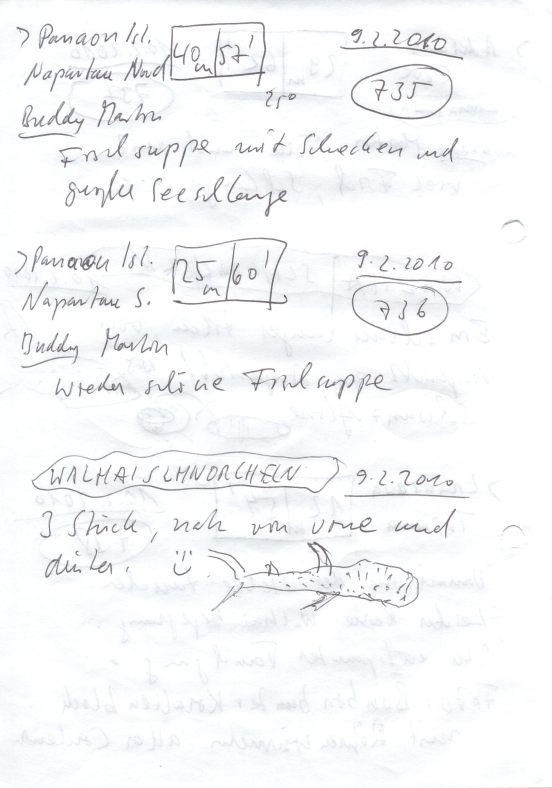 > Panaon Isl. 40m 57' 9.2.2010
Napantau Nord 250 735
Buddy Martin
Fischsuppe mit Schnecken und
große Seeschlange
> Panaon Isl. 25m 60' 9.2.2010
Napantau S. 736
Buddy Martin
wieder schöne Fischsuppe
WALHAISCHNORCHELN 9.2.2010
3 Stück, nah von vorne und
dahinter. :)